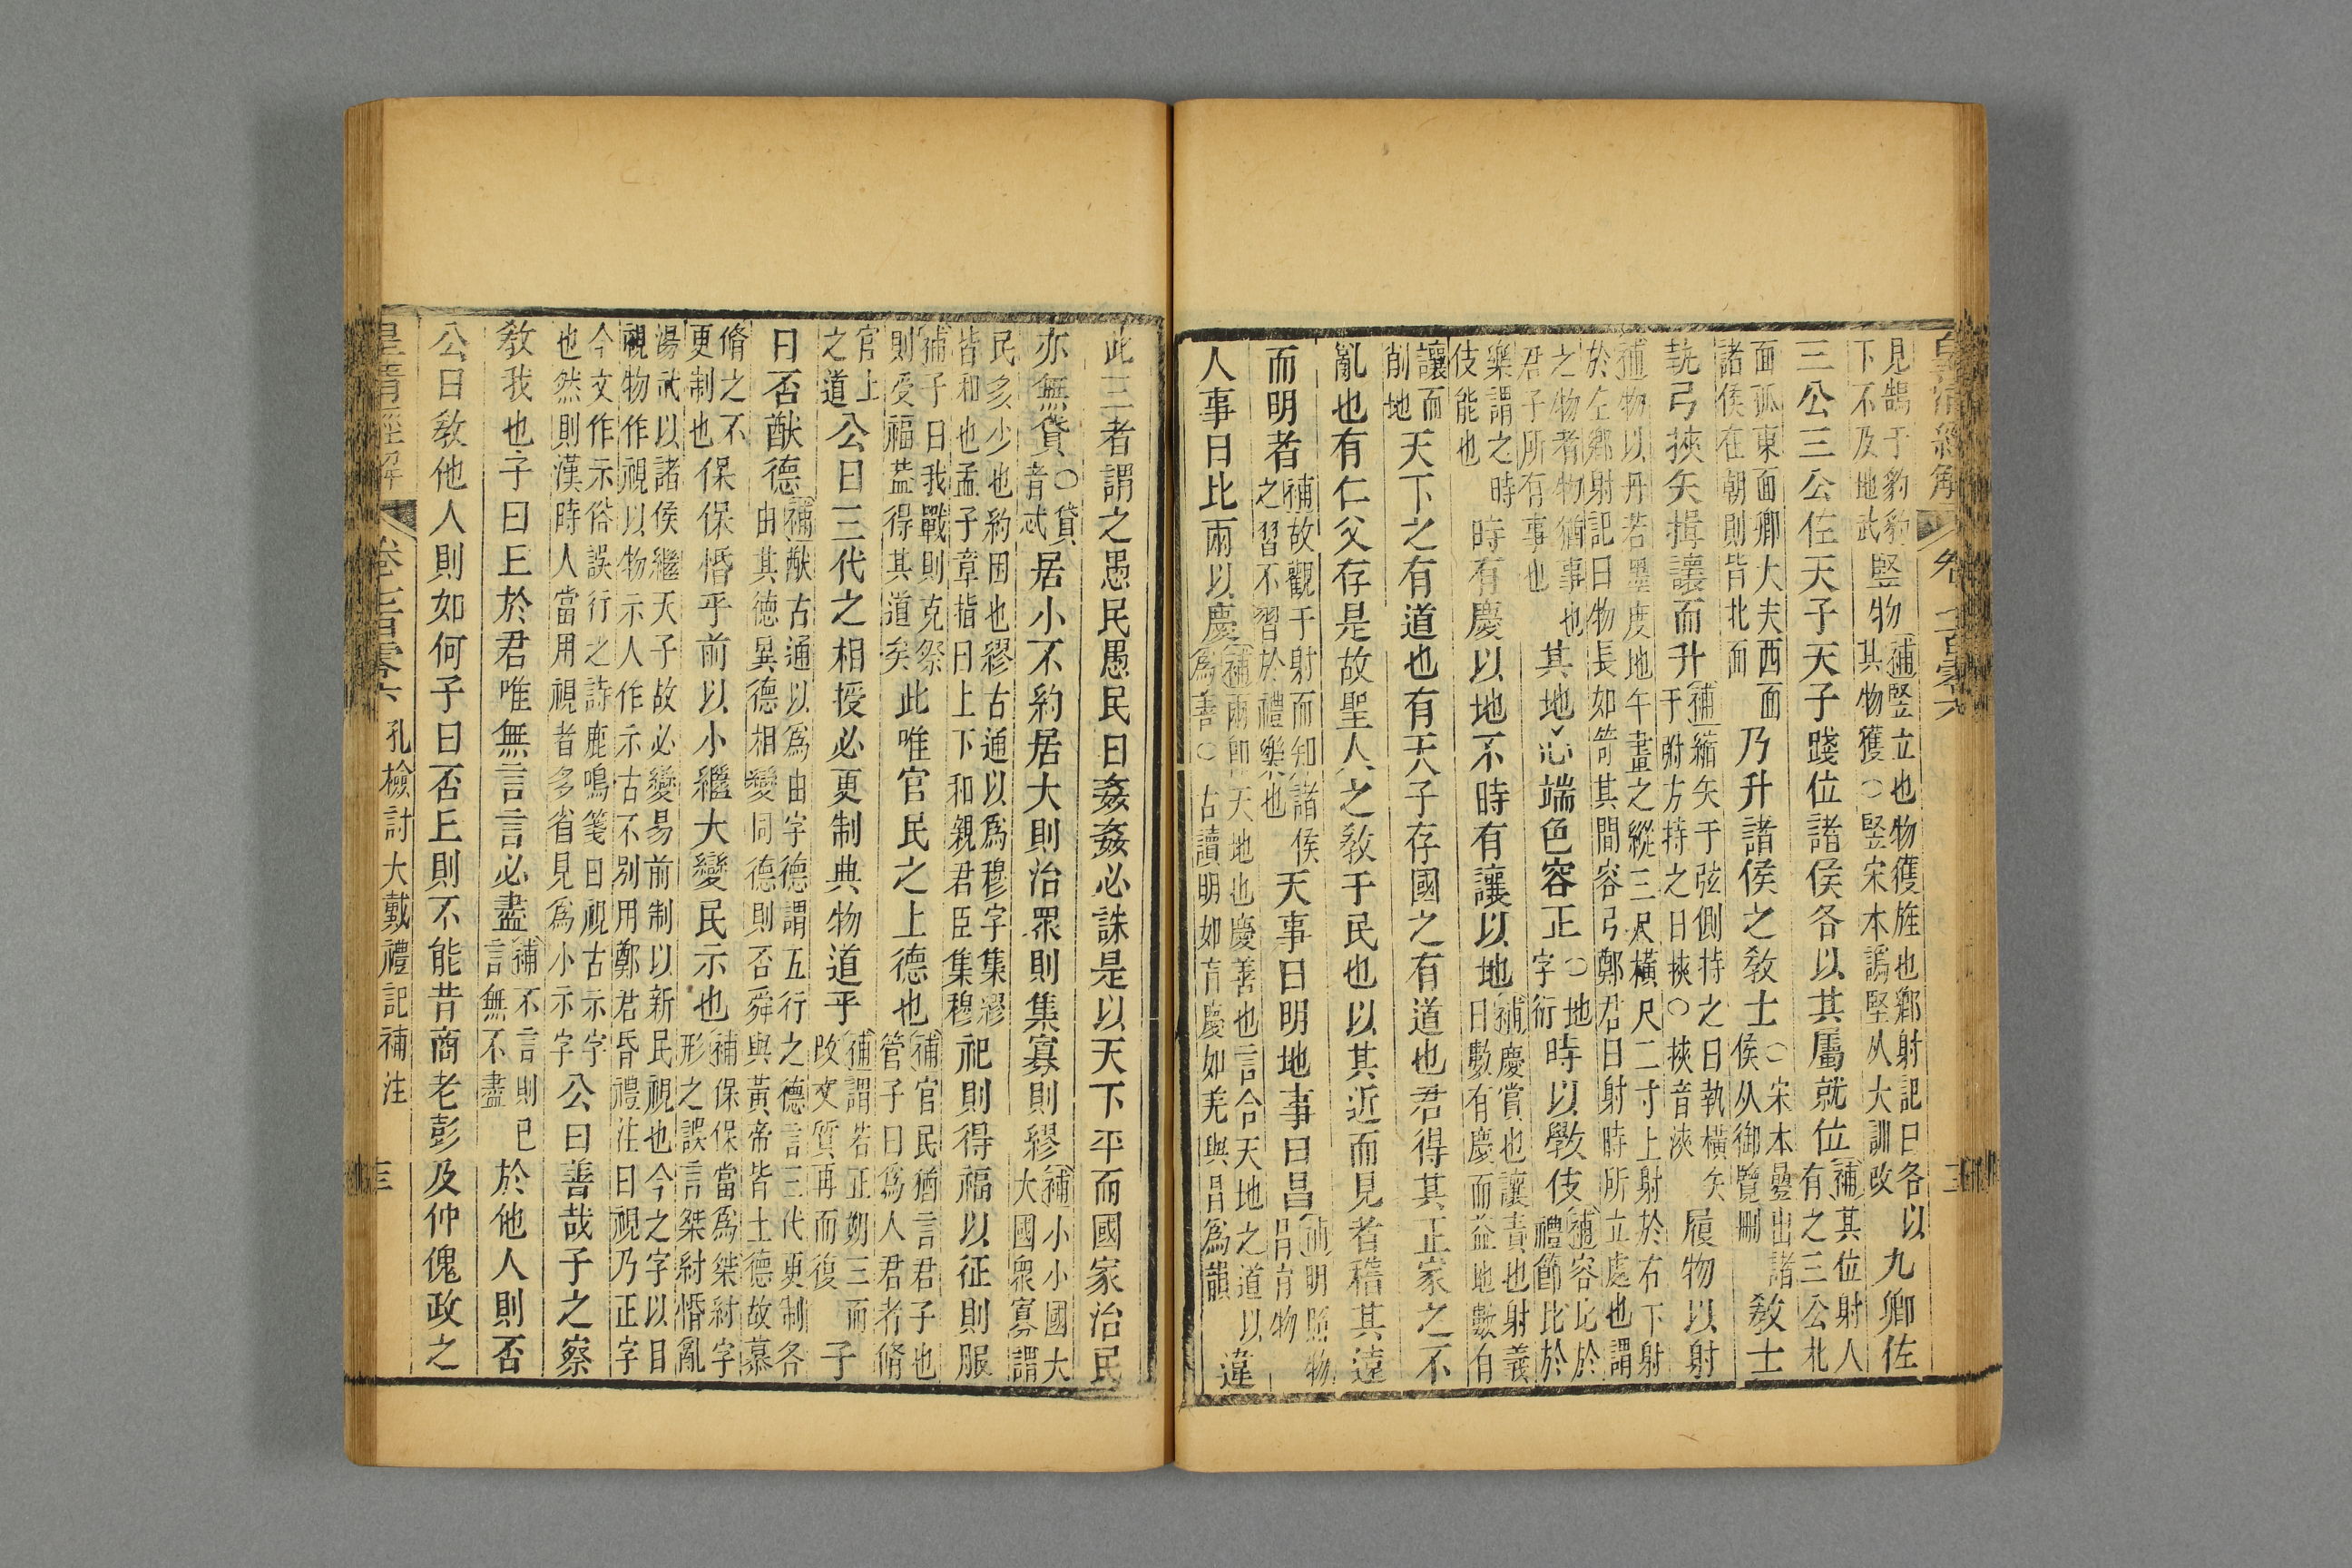 皇清經解 卷七百零六 三
見鵠于豹豹下不及地武豎物補豎立也物獲旌也鄉射記曰各以其物獲○豎宋本譌堅从大訓改九卿佐
三公三公佐天子天子踐位諸侯各以其屬就位補其位射人有之三公北
面孤東面卿大夫西面諸侯在朝則皆北面乃升諸侯之教士○宋本疊出諸侯从御覽刪教士
執弓挾矢揖讓而升補縮矢于弦側持之曰執橫矢于弣方持之曰挾○挾音浹履物以射
補物以丹若墨度地午畫之縱三尺橫尺二寸上射於右下射於左鄉射記曰物長如笴其間容弓鄭君曰射時所立處也謂
之物者物猶事也君子所有事也其地心端色容正○地字衍時以斆伎補容比於禮節比於
樂謂之時伎能也時有慶以地不時有讓以地補慶賞也讓責也射義曰數有慶而益地數有
讓而削地天下之有道也有天子存國之有道也君得其正家之不
亂也有仁父存是故聖人之教于民也以其近而見者稽其遠
而明者補故觀于射而知諸侯之習不習於禮樂也天事曰明地事曰昌補明照物昌育物
人事曰比兩以慶補兩卽天地也慶善也言合天地之道以爲善○古讀明如肓慶如羌與昌爲韻違
此三者謂之愚民愚民曰姦姦必誅是以天下平而國家治民
亦無貸○貸音忒居小不約居大則治眾則集寡則繆補小小國大大國衆寡謂
民多少也約困也繆古通以爲穆字集繆皆和也孟子章指曰上下和親君臣集穆祀則得福以征則服
補子曰我戰則克祭則受福葢得其道矣此唯官民之上德也補官民猶言君子也管子曰爲人君者脩
官上之道公曰三代之相授必更制典物道乎補謂若正朔三而改文質再而復子
曰否猷德補猷古通以爲由字德謂五行之德言三代更制各由其德異德相變同德則否舜與黃帝皆土德故慕
脩之不更制也保保惛乎前以小繼大變民示也補保保當爲桀紂字形之誤言桀紂惛亂
湯武以諸侯繼天子故必變易前制以新民視也今之字以目視物作視以物示人作示古不別用鄭君昏禮注曰視乃正字
今文作示俗誤行之詩鹿鳴箋曰視古示字也然則漢時人當用視者多省見爲小示字公曰善哉子之察
教我也子曰丘於君唯無言言必盡補不言則已言無不盡於他人則否
公曰教他人則如何子曰否丘則不能昔商老彭及仲傀政之
皇清經解 卷七百零六 孔檢討大戴禮記補注 三